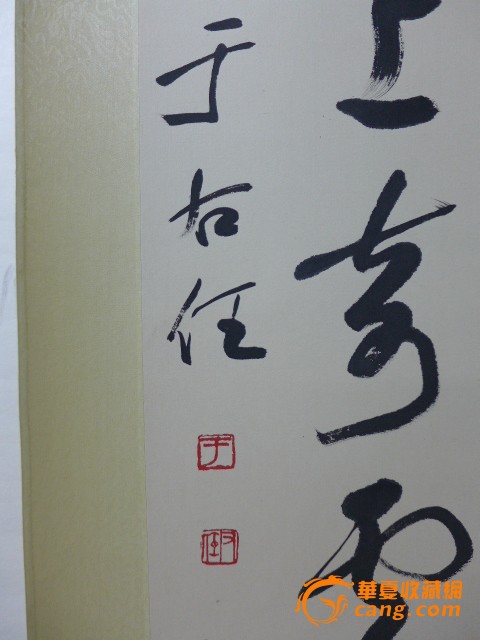 上奇
于右任
于
華夏收藏網
cang.com